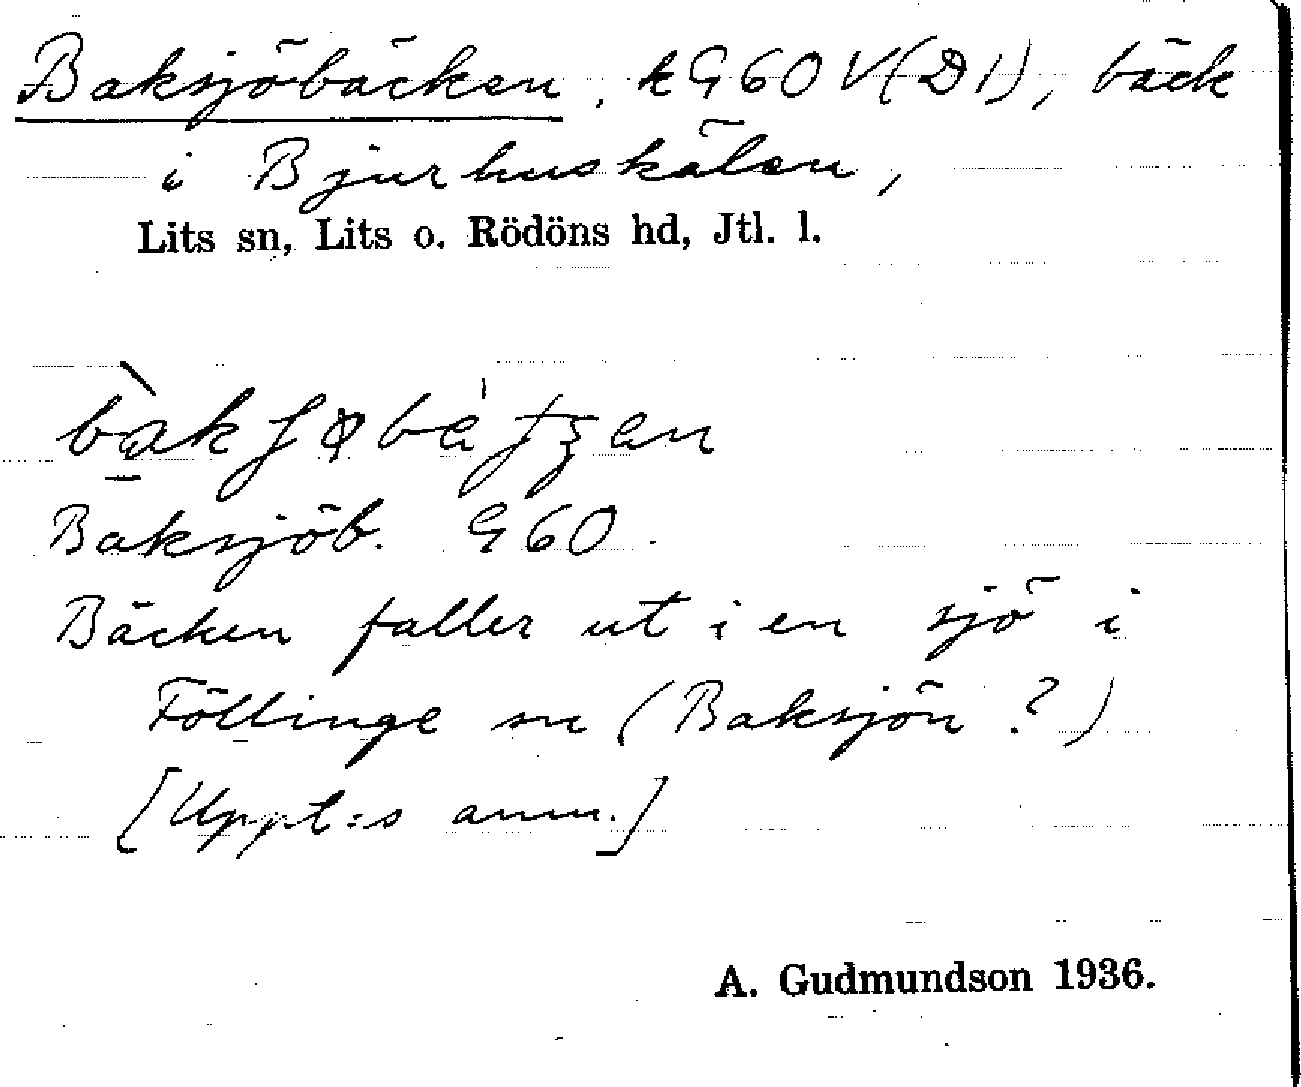 Baksjöbäcken, k G60 V(D1), bäck
i Bjurhuskälen,
Lits sn, Lits o. Rödöns hd, Jtl. l.
Baksjöb. G60.
Bäcken faller ut i en sjö i
Föllinge sn (Baksjön?)
[Uppt:s anm.]
A. Gudmundson 1936.